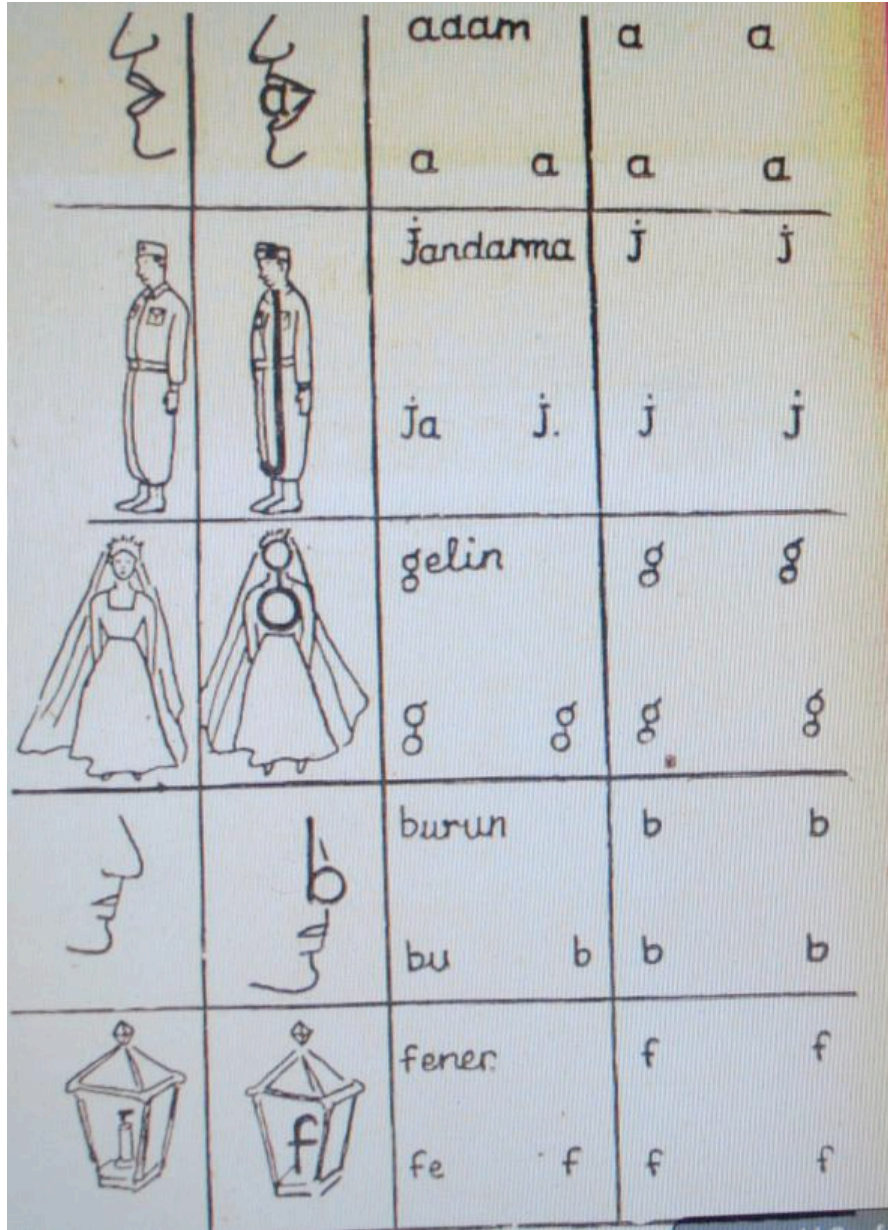 a adam a a
a a a a
jandarma j j
ja j. j j
gelin g g
g g g g
burun b b
bu b b b
fener. f f
f fe f f f